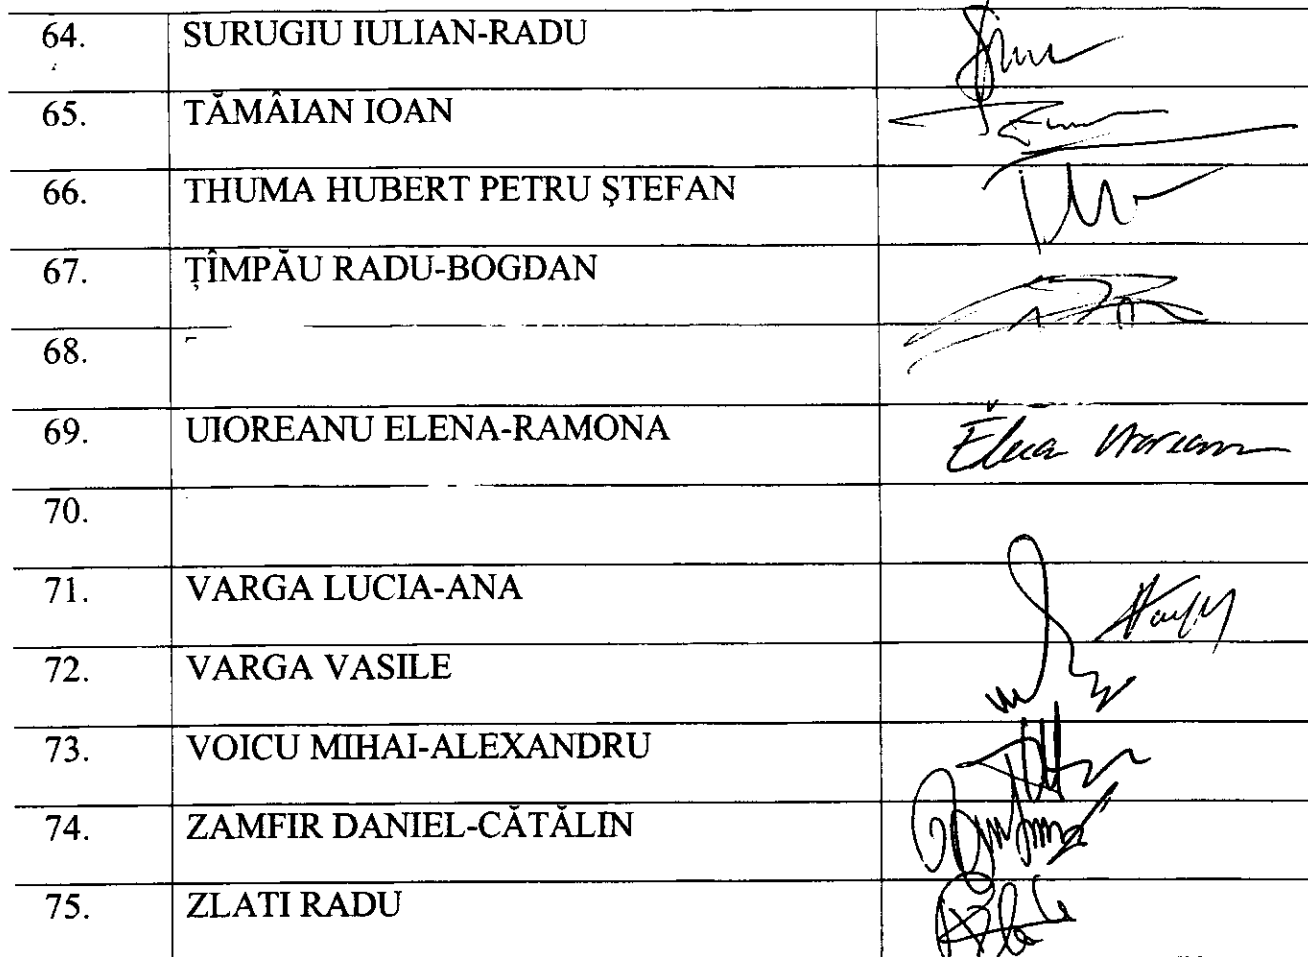 64. SURUGIU IULIAN-RADU
65. TĂMÂIAN IOAN
66. THUMA HUBERT PETRU ŞTEFAN
67. ŢÎMPĂU RADU-BOGDAN
68.
69. UIOREANU ELENA-RAMONA
70.
71. VARGA LUCIA-ANA
72. VARGA VASILE
73. VOICU MIHAI-ALEXANDRU
74. ZAMFIR DANIEL-CĂTĂLIN
75. ZLATI RADU